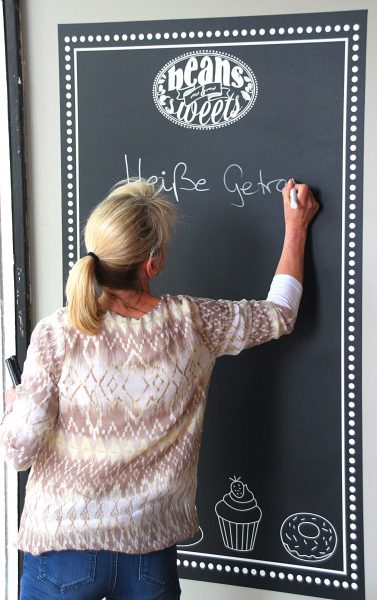 beans
and
sweets
Heiße Getra